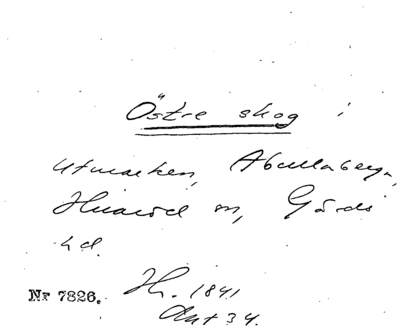 Östre skog i
utmarken, Abullaberga,
Huaröd sn, Gärds
hd.
Nr 7826. Hr. 1841
Akt 34.